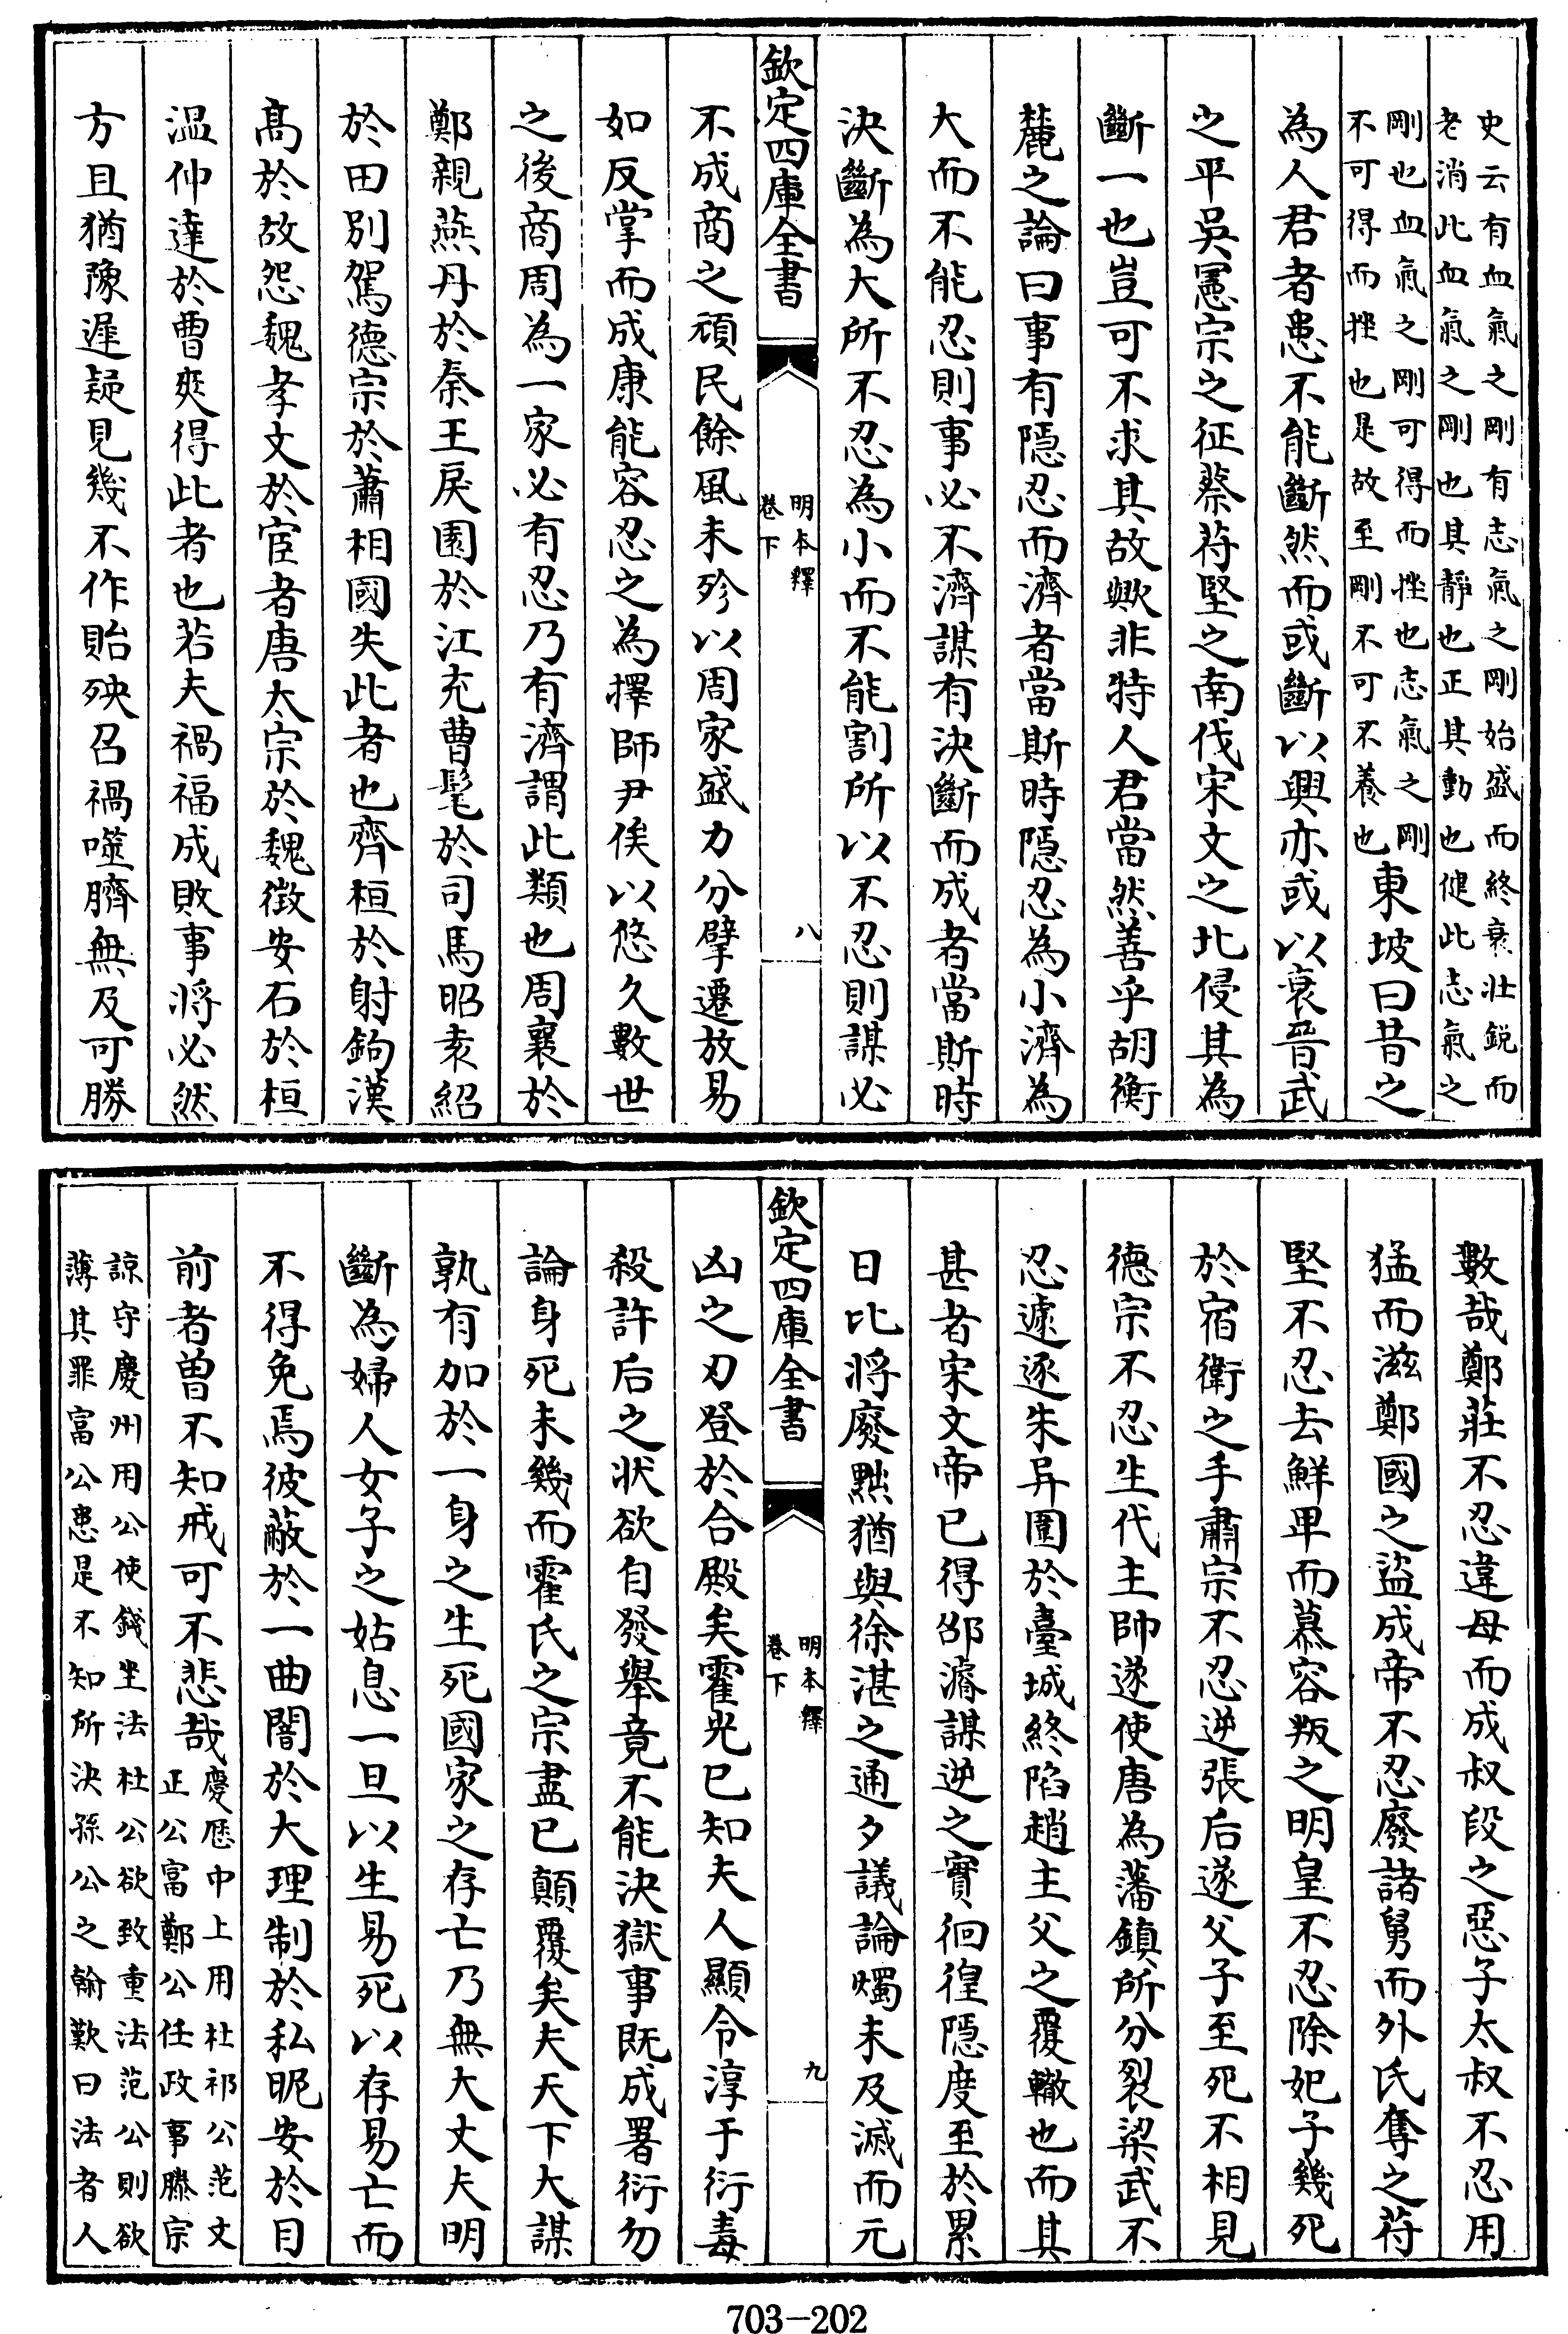 史云有血氣之剛有志氣之剛始盛而終衰壯鋭而
老消此血氣之剛也其靜也正其動也健此志氣之
剛也血氣之剛可得而挫也志氣之剛
不可得而挫也是故至剛不可不養也東坡曰昔之
為人君者患不能斷然而或斷以興亦或以衰晉武
之平吳憲宗之征蔡苻堅之南伐宋文之北侵其為
斷一也豈可不求其故歟非特人君當然善乎胡衡
麓之論曰事有隱忍而濟者當斯時隱忍為小濟為
大而不能忍則事必不濟謀有決斷而成者當斯時
決斷為大所不忍為小而不能割所以不忍則謀必
欽定四庫全書
明本釋
卷下
八
不成商之頑民餘風未殄以周家盛力分擘遷放易
如反掌而成康能容忍之為擇師尹俟以悠久數世
之後商周為一家必有忍乃有濟謂此類也周襄於
鄭親燕丹於秦王戾園於江充曹髦於司馬昭袁紹
於田別駕德宗於蕭相國失此者也齊桓於射鉤漢
高於故怨魏孝文於宦者唐太宗於魏徵安石於桓
温仲達於曹爽得此者也若夫禍福成敗事將必然
方且猶豫遲疑見幾不作貽殃召禍噬臍無及可勝
數哉鄭莊不忍違母而成叔段之惡子太叔不忍用
猛而滋鄭國之盜成帝不忍廢諸舅而外氏奪之苻
堅不忍去鮮卑而慕容叛之明皇不忍除妃子幾死
於宿衛之手肅宗不忍逆張后遂父子至死不相見
德宗不忍生代主帥遂使唐為藩鎮所分裂梁武不
忍遽逐朱异圍於臺城終陷趙主父之覆轍也而其
甚者宋文帝已得邵濬謀逆之實徊徨隱度至於累
日比將廢黜猶與徐湛之通夕議論燭未及滅而元
欽定四庫全書
明本釋
卷下
九
凶之刃登於合殿矣霍光已知夫人顯令淳于衍毒
殺許后之狀欲自發舉竟不能決獄事既成署衍勿
論身死未幾而霍氏之宗盡已顛覆矣夫天下大謀
孰有加於一身之生死國家之存亡乃無大丈夫明
斷為婦人女子之姑息一旦以生易死以存易亡而
不得免焉彼蔽於一曲闇於大理制於私昵安於目
前者曽不知戒可不悲哉慶厯中上用杜祁公范文
正公富鄭公任政事滕宗
諒守慶州用公使錢坐法杜公欲致重法范公則欲
薄其罪富公患是不知所決孫公之翰歎曰法者人
703-202